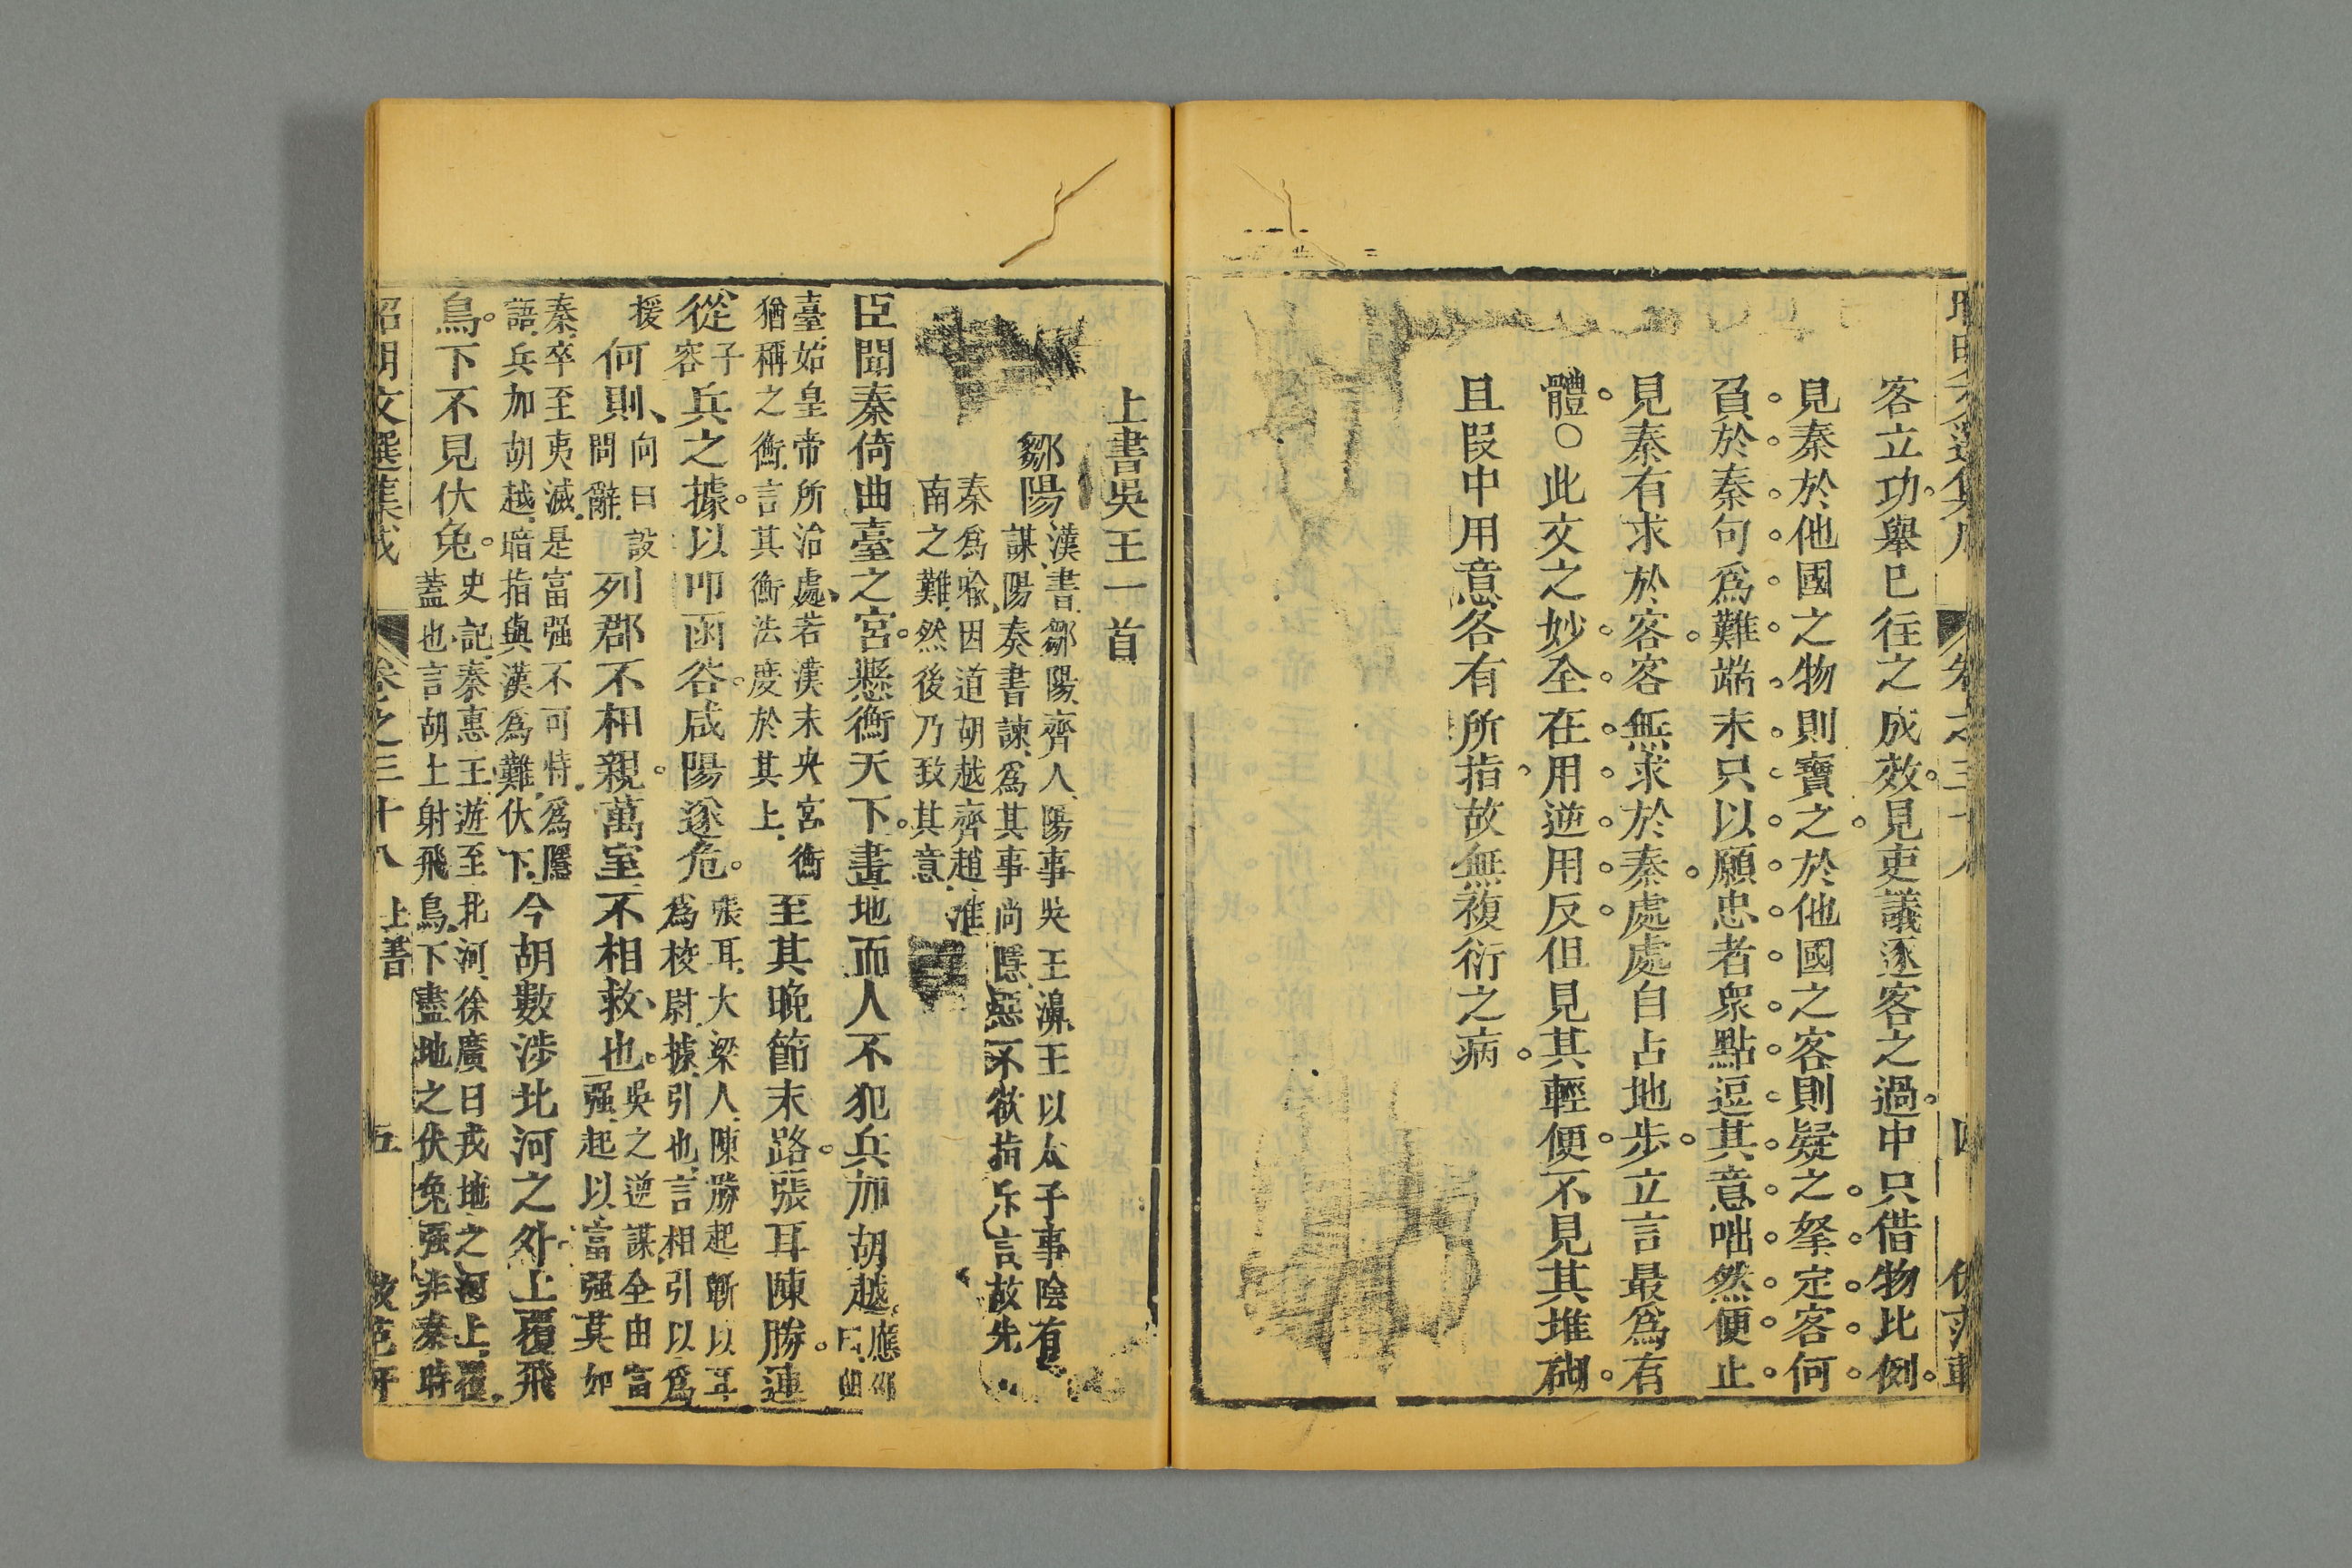 客立功舉巳往之成效見吏議逐客之過中只借物比例
見秦於他國之物則寶之於他國之客則疑之拏定客何
負於秦句爲難端末只以願忠者衆點逗其意咄然便止
見秦有求於客客無求於秦處處自占地步立言最爲有
體○此文之妙全在用逆用反但見其輕便不見其堆砌
且段中用意各有所指故無複衍之病
上書吳王一首
鄒陽
漢書鄒陽齊人陽事吳王濞王以太子事陰有
謀陽奏書諫爲其事尚隱惡不欲指斥言故先
秦爲喻因道胡越齊趙淮
南之難然後乃致其意
臣聞秦倚曲臺之宮懸衡天下畫地而人不犯兵加胡越
應劭
曰曲
臺始皇帝所治處若漢未央宮衡
猶稱之衡言其衡法度於其上
至其晚節末路張耳陳勝連
從
子
容
兵之據以叩函谷咸陽遂危
張耳大梁人陳勝起蘄以耳
爲校尉據引也言相引以爲
援
何則
向曰設
問辭
列郡不相親萬室不相救也
吳之逆謀全由富
强起以富强莫如
秦卒至夷滅是富强不可恃爲隱
語兵加胡越暗指與漢爲難伏下
今胡數涉北河之外上覆飛
鳥下不見伏兔
史記秦惠王遊至北河徐廣曰戎地之河上覆
蓋也言胡上射飛鳥下盡地之伏兔强非秦時
昭明文選集成
卷之三十八
上書
五